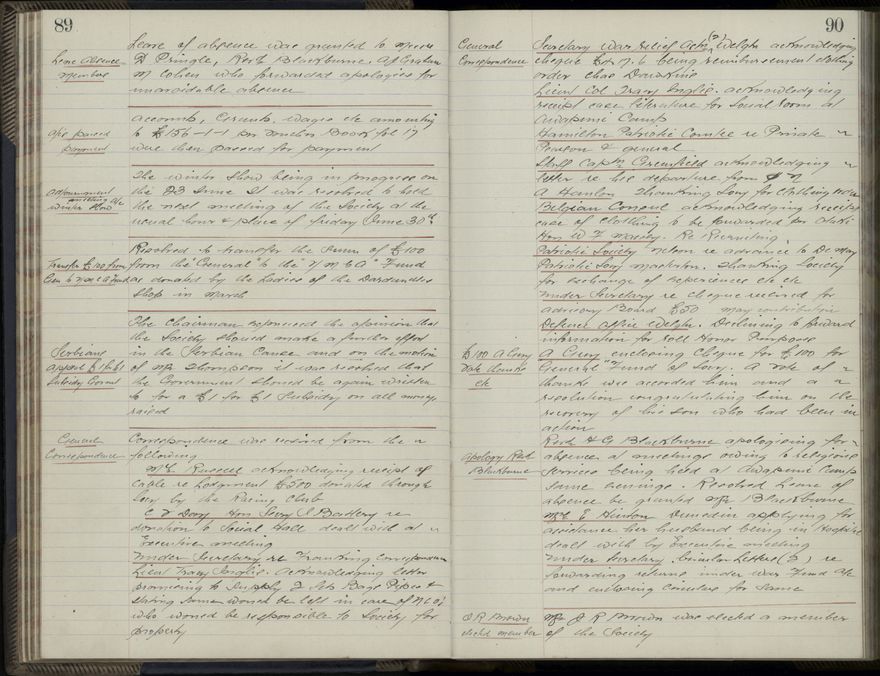 89
Leave Absence
Members
Leave of absence was granted to Messrs
R Pringle, Revd Blackburne, A J Graham
M Cohen who forwarded apologies for
unavoidable absence
a/cs passed
payment
Accounts, Grants, Wages etc amounting
to £156-1-1 per Voucher Book fol 17
were then passed for payment
Adjournment
meeting a/c
Winter Show
The Winter Show being in progress on
the 23 June It was resolved to hold
the next meeting of the Society at the
usual hour & place of Friday June 30th
Transfer £100 from
Gen to Y M C A Fund
Resolved to transfer the sum of £100
from the "General" to the "Y M C A" Fund
as donated by the Ladies of the Dardanelles
Shop in March
Serbians
appeal £1 for £1
Subsidy Govmt
The Chairman expressed the opinion that
the Society should make a further effort
in the Serbian Cause and on the motion
of Mr Thompson it was resolved that
the Government should be again written
to for a £1 for £1 Subsidy on all moneys
raised
General
Correspondence
Correspondence was received from the
following
Mr Russell acknowledging receipt of
Cable re Lodgment £500 donated through
Socy by the Racing Club
Hon Secy re
donation to Social Hall dealt with at
Executive meeting
Under Secretary re Franking Correspondence
Lieut Tracy Inglis. Acknowledging letter
promising to supply 2 sets Bag Pipes &
stating same would be left in care of
who would be responsible to Society for
property
90
General
Correspondence
Secretary War Relief Assn Welgtn acknowledging
cheque being reimbursement clothing
order Chas Dawkins
Lieut Col Tracy Inglis. acknowledging
receipt case literature for Social Room at
Awapuni Camp
Hamilton Patriotic Comtee re Private
Pearson & general
Staff Captn Greenfield acknowledging
letter re his departure from
A Hanlon Thanking Socy for clothing order
Belgian Consul acknowledging receipt
case of clothing to be forwarded for
Hon W F Massey. Re Recruiting,
Patriotic Society Nelson re advance to
Patriotic Socy Masterton. Thanking Society
for exchange of experiences etc etc
Under Secretary re cheque received for
Advisory Board £50 may contribution
Defence Office Welgtn. Declining to forward
information for Roll Honor Purposes
£100 A Guy
Vote thanks
etc
A Guy enclosing cheque for £100 for
General Fund of Socy. A vote of
thanks was accorded him and a
resolution congratulating him on the
recovery of his son who had been in
action
Apology Revd
Blackburne
Revd H G Blackburne apologising for
absence at meetings owing to religious
services being held at Awapuni Camp
same evenings. Resolved Leave of
absence be granted Mr Blackburne
Mrs E Hinton Dunedin applying for
assistance her husband being in Hospital
dealt with by Executive meeting
Under Secretary. Circular Letters re
forwarding returns under War Fund Act
and enclosing circulars for same
J R Brown
elected member
Mr J R Brown was elected a member
of the Society